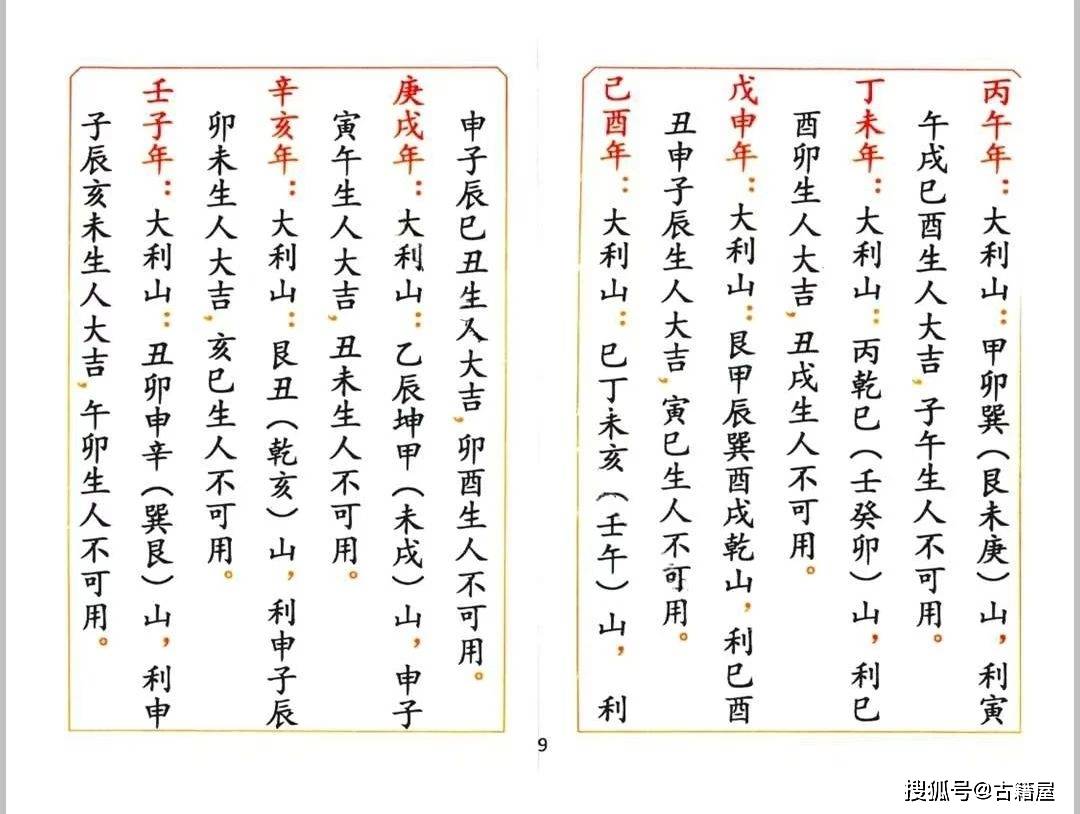 丙午年：大利山：甲卯巽（艮未庚）山，利寅
午戌巳酉生人大吉，子午生人不可用。
丁未年：大利山：丙乾巳（壬癸卯）山，利巳
酉卯生人大吉，丑戌生人不可用。
戊申年：大利山：艮甲辰巽酉戌乾山，利巳酉
丑申子辰生人大吉，寅巳生人不可用。
己酉年：大利山：巳丁未亥（壬午）山，利
申子辰巳丑生人大吉，卯酉生人不可用。
庚戌年：大利山：乙辰坤甲（未戌）山，申子
寅午生人大吉，丑未生人不可用。
辛亥年：大利山：艮丑（乾亥）山，利申子辰
卯未生人大吉，亥巳生人不可用。
壬子年：大利山：丑卯申辛（巽艮）山，利申
子辰亥未生人大吉，午卯生人不可用。
9
搜狐号@古籍屋